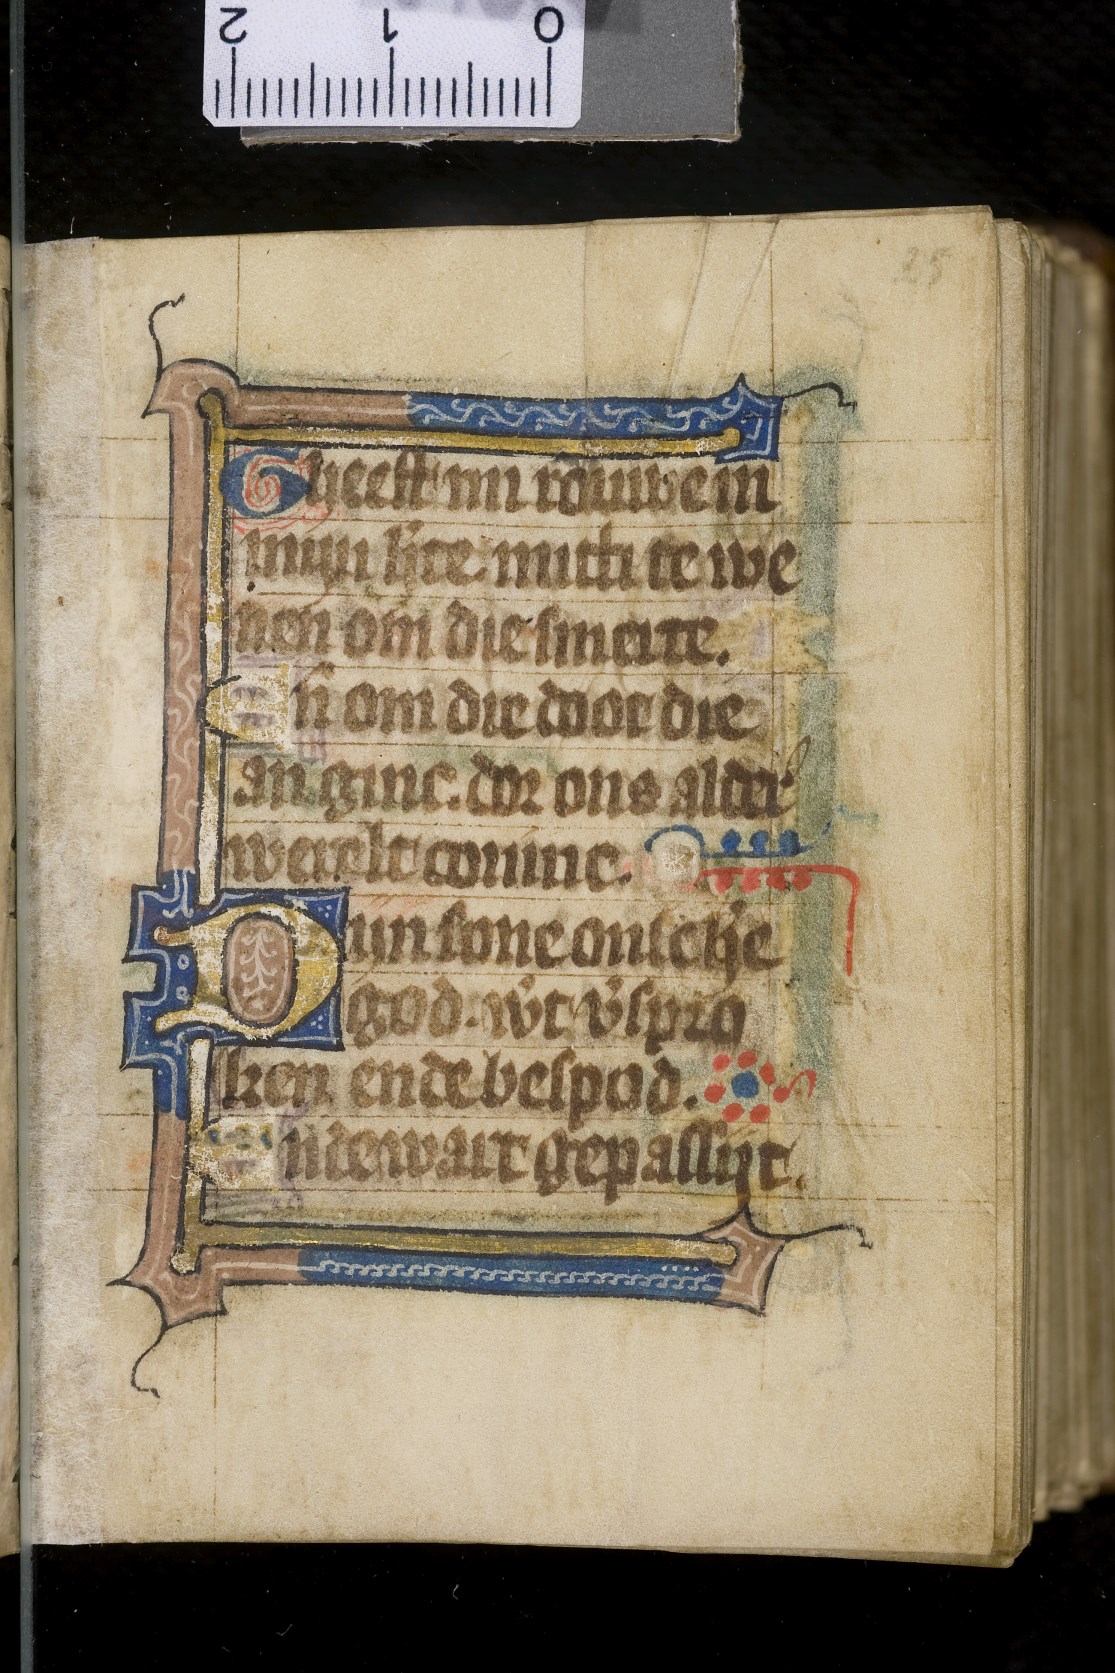 2 1 0
25
Gheeft mi rouwe in
mijn h'te mitti te we
nen om die smerte.
En om die doot die
an ginc. dor ons alder
werelt coninc.
Dijn sone ontei h'e
god. w't v'spro
ken ende bespod.
Ende wart gepassijt.